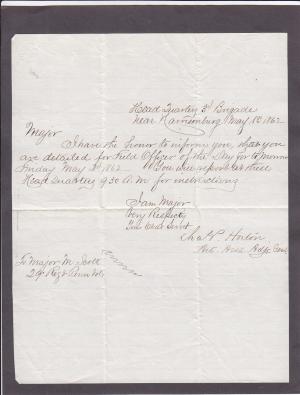 Head Quarters 3d Brigade
Near Harrisonburg May 1st 1862
Major
I have the honor to inform you, that you
are detailed for Field Officer of the Day for to morrow
Friday May 2d 1862. You will report at these
Head Quarters 9 30 A.M for instructions
I am Major
Very Respectfy
Your Obdt Servt
Chas P. Horton
Act. Asst Adjt Genl
To Major M. Scott
29 Regt Penn Vols